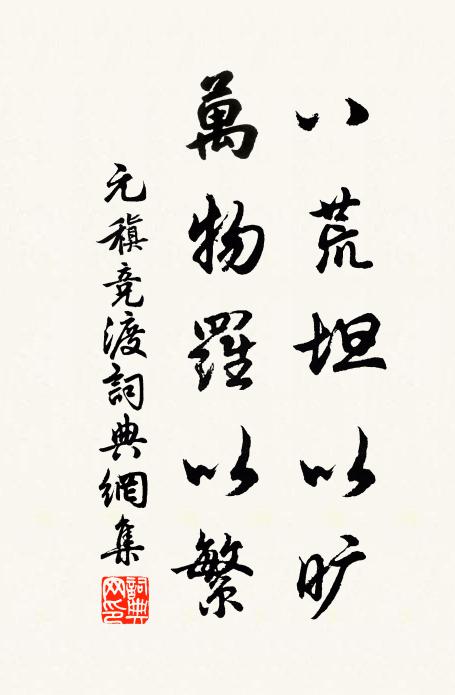 八荒坦以旷
萬物羅以繁
元稹竞渡詞典網集
詞典网印